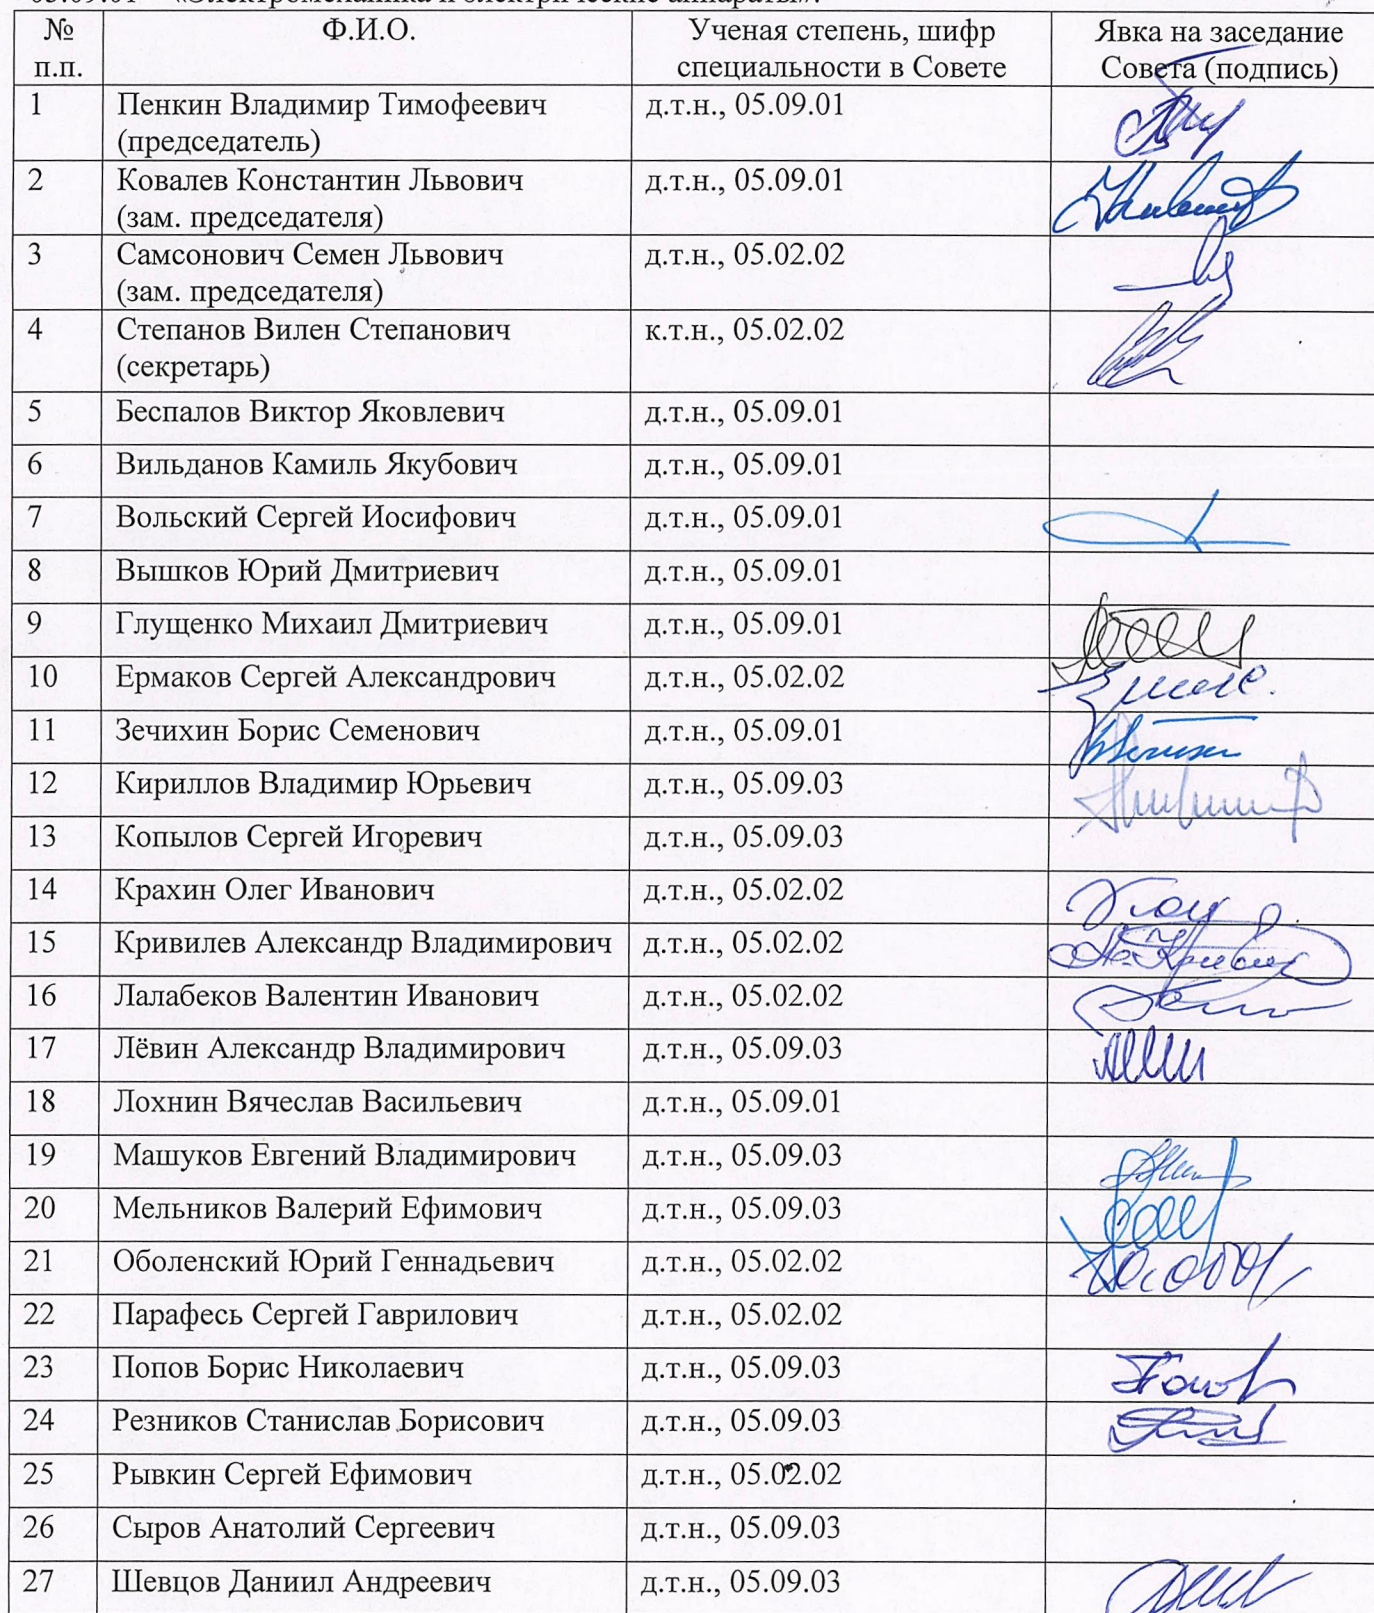 05.09.01 – «Электромеханика и электрические аппараты».
№ п.п. Ф.И.О. Ученая степень, шифр специальности в Совете Явка на заседание Совета (подпись)
1 Пенкин Владимир Тимофеевич д.т.н., 05.09.01
(председатель)
2 Ковалев Константин Львович д.т.н., 05.09.01
(зам. председателя)
3 Самсонович Семен Львович д.т.н., 05.02.02
(зам. председателя)
4 Степанов Вилен Степанович к.т.н., 05.02.02
(секретарь)
5 Беспалов Виктор Яковлевич д.т.н., 05.09.01
6 Вильданов Камиль Якубович д.т.н., 05.09.01
7 Вольский Сергей Иосифович д.т.н., 05.09.01
8 Вышков Юрий Дмитриевич д.т.н., 05.09.01
9 Глущенко Михаил Дмитриевич д.т.н., 05.09.01
10 Ермаков Сергей Александрович д.т.н., 05.02.02
11 Зечихин Борис Семенович д.т.н., 05.09.01
12 Кириллов Владимир Юрьевич д.т.н., 05.09.03
13 Копылов Сергей Игоревич д.т.н., 05.09.03
14 Крахин Олег Иванович д.т.н., 05.02.02
15 Кривилев Александр Владимирович д.т.н., 05.02.02
16 Лалабеков Валентин Иванович д.т.н., 05.02.02
17 Лёвин Александр Владимирович д.т.н., 05.09.03
18 Лохнин Вячеслав Васильевич д.т.н., 05.09.01
19 Машуков Евгений Владимирович д.т.н., 05.09.03
20 Мельников Валерий Ефимович д.т.н., 05.09.03
21 Оболенский Юрий Геннадьевич д.т.н., 05.02.02
22 Парафесь Сергей Гаврилович д.т.н., 05.02.02
23 Попов Борис Николаевич д.т.н., 05.09.03
24 Резников Станислав Борисович д.т.н., 05.09.03
25 Рывкин Сергей Ефимович д.т.н., 05.02.02
26 Сыров Анатолий Сергеевич д.т.н., 05.09.03
27 Шевцов Даниил Андреевич д.т.н., 05.09.03